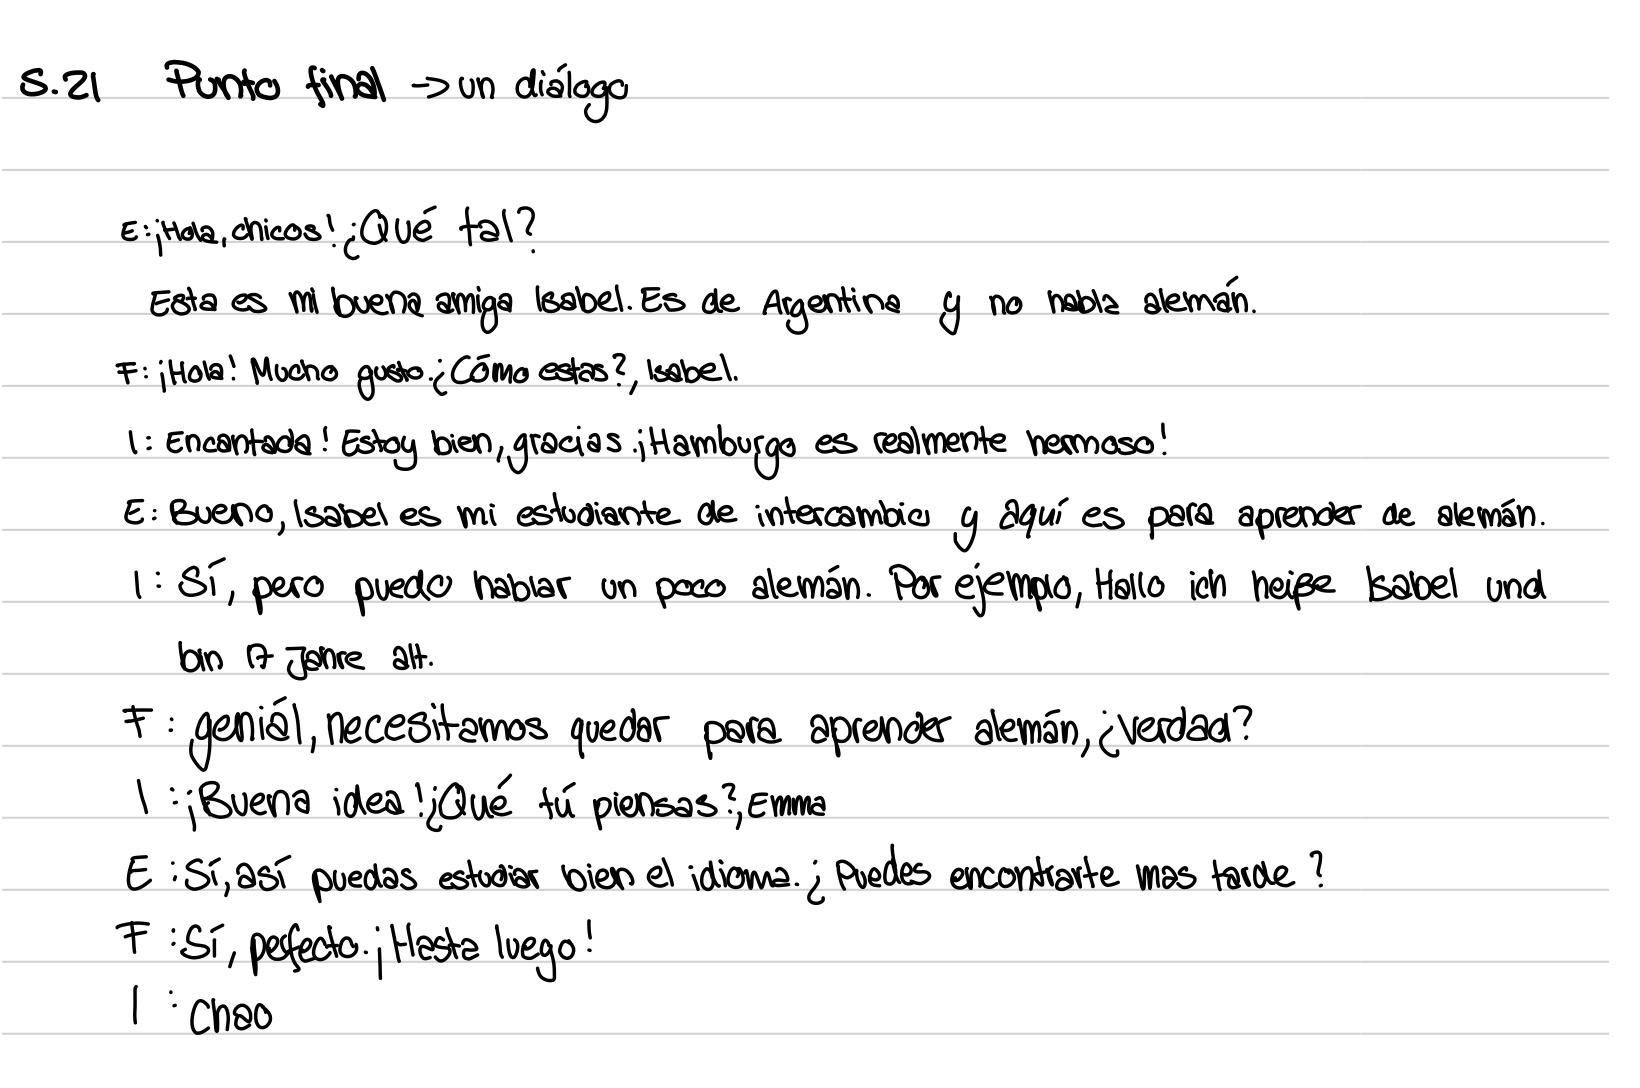 S.21 Punto final → un diálogo
E: ¡Hola, chicos! ¿Qué tal?
Esta es mi buena amiga Isabel. Es de Argentina y no habla alemán.
F: ¡Hola! Mucho gusto. ¿Cómo estas?, Isabel.
I: Encantada! Estoy bien, gracias. ¡Hamburgo es realmente hermoso!
E: Bueno, Isabel es mi estudiante de intercambio y aquí es para aprender de alemán.
I: Sí, pero puedo hablar un poco alemán. Por ejemplo, Hallo ich heiße Isabel und
bin 17 Jahre alt.
F: geniál, necesitamos quedar para aprender alemán, ¿verdad?
I: ¡Buena idea! ¿Qué tú piensas?, Emma
E: Sí, así puedas estudiar bien el idioma. ¿Puedes encontrarte mas tarde?
F: Sí, perfecto. ¡Hasta luego!
I: Chao